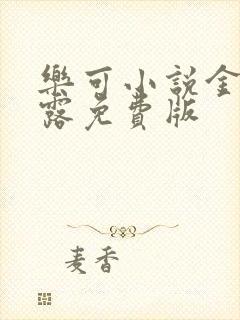 樂可小說金
露免費版
麦香